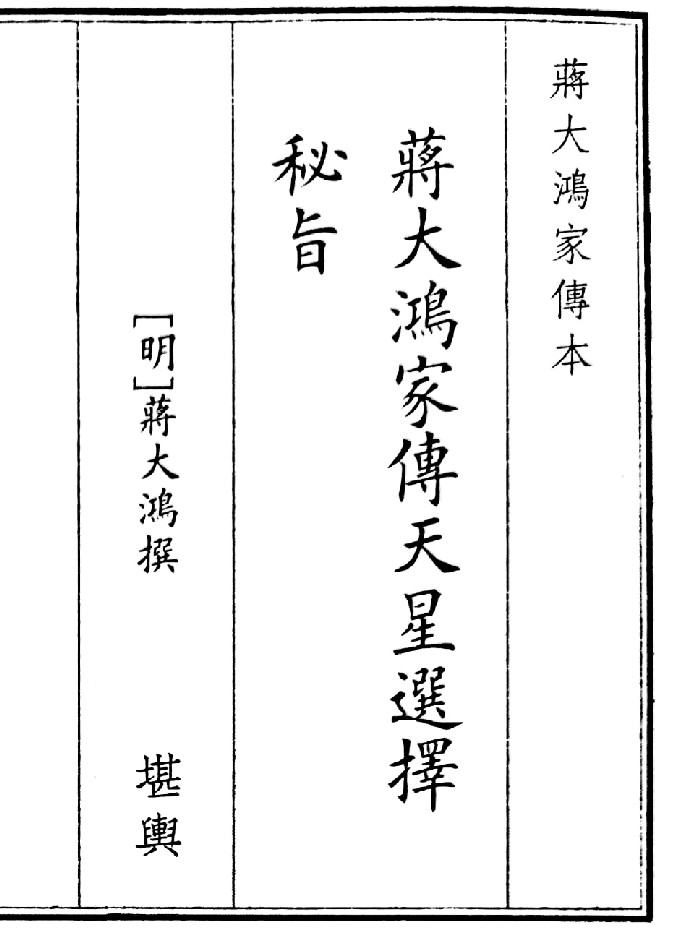 蔣大鴻家傳本
蔣大鴻家傳天星選擇
秘旨
[明]蔣大鴻撰
堪輿